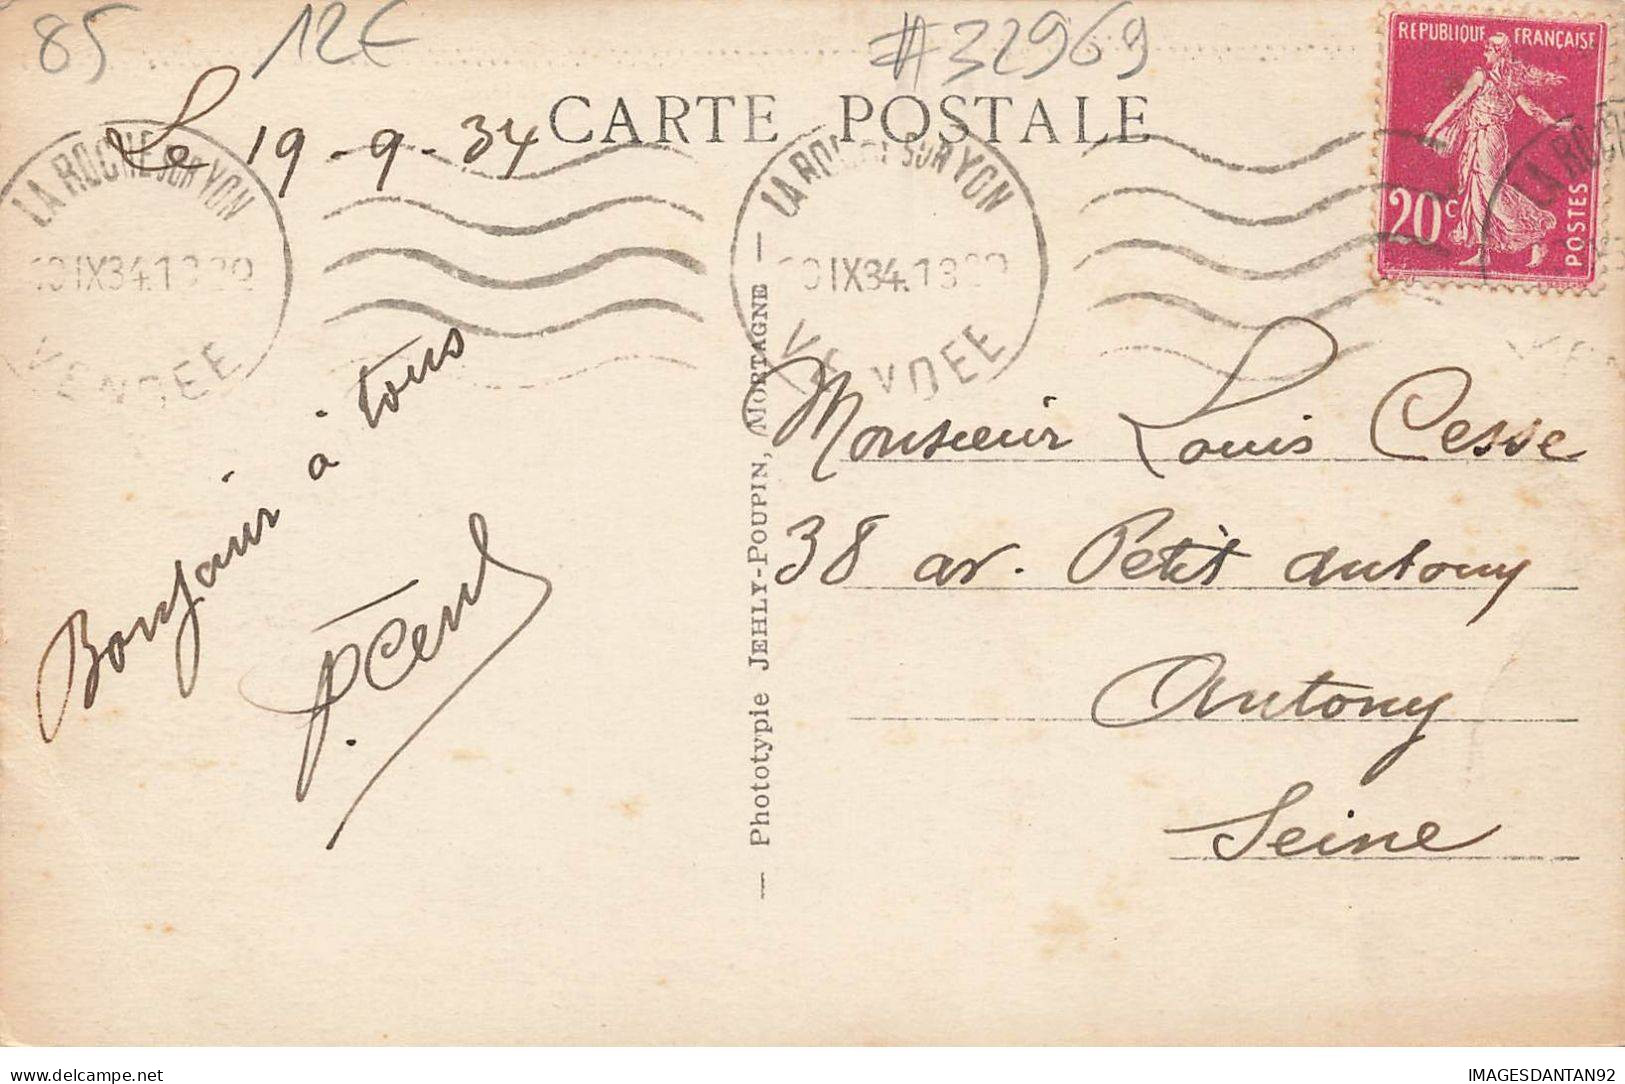 85 12€ #32969
CARTE POSTALE
REPUBLIQUE FRANÇAISE
20c
POSTES
Le 19-9-34
LA ROCHE SUR YON
VENDEE
LA ROCHE SUR YON
VENDEE
Bonjour à tous
— Phototypie JEHLY-POUPIN, MORTAGNE —
Monsieur Louis Cesse
38 av. Petit Antony
Antony
Seine
delcampe.net
IMAGESDANTAN92